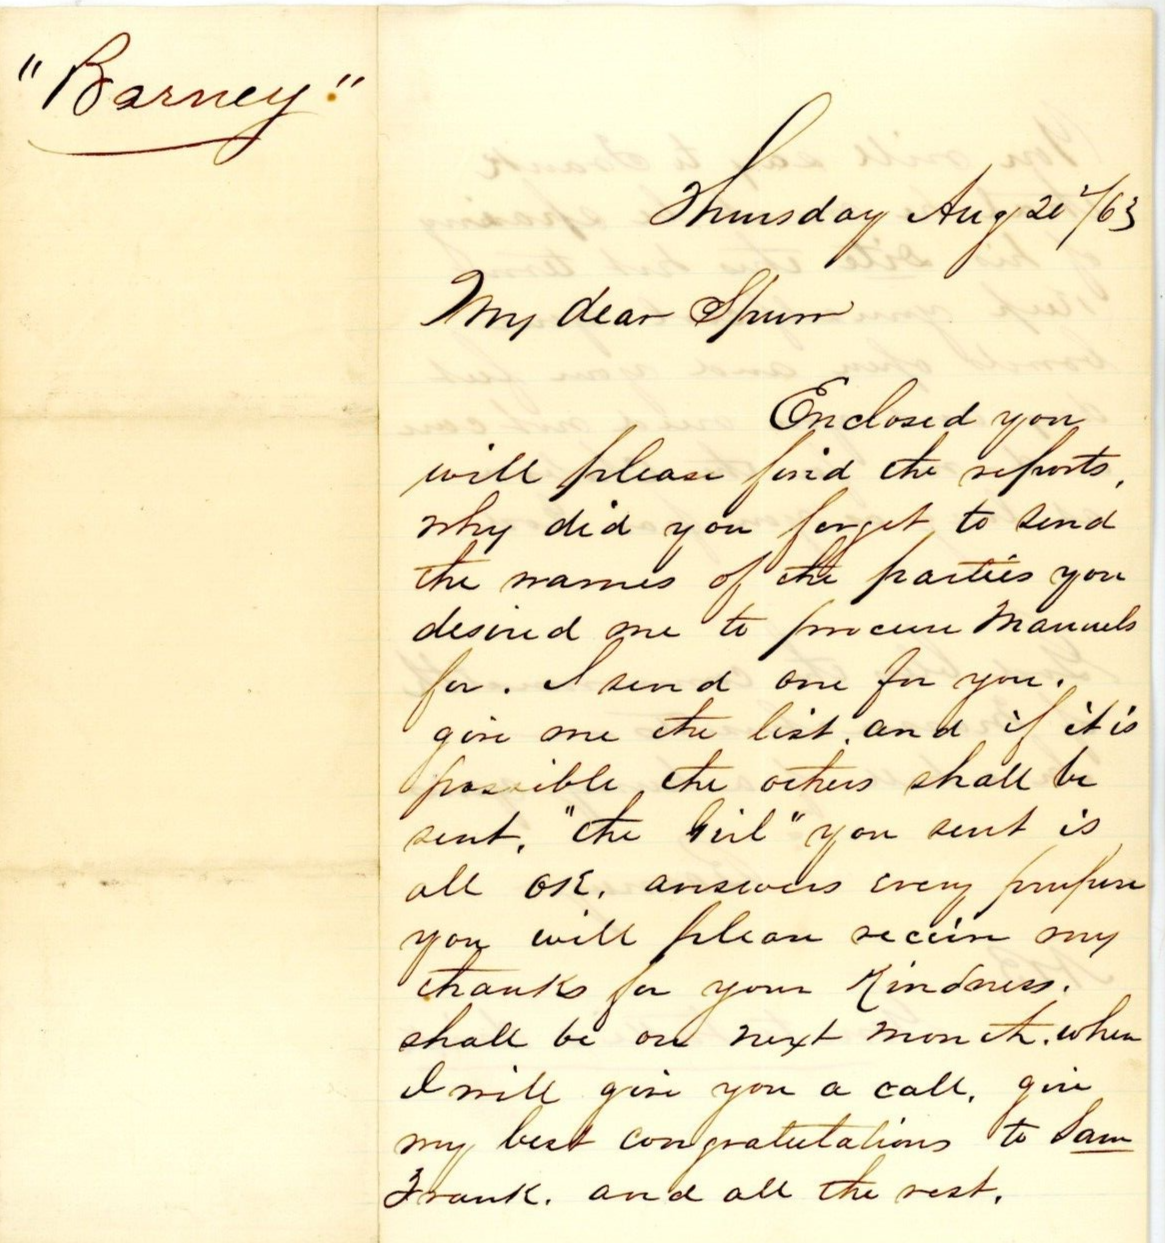 "Barney."
Thursday Aug 20/63
My dear Spurr
Enclosed you
will please find the reports,
why did you forget to send
the names of the parties you
desired me to procure Manuels
for. I send one for you.
give me the list, and if it is
possible the others shall be
sent, "the Girl" you sent is
all OK. answers every purpose
you will please receive my
thanks for your Kindness.
shall be on next month. when
I will give you a call, give
my best congratulations to Sam
Frank. and all the rest.